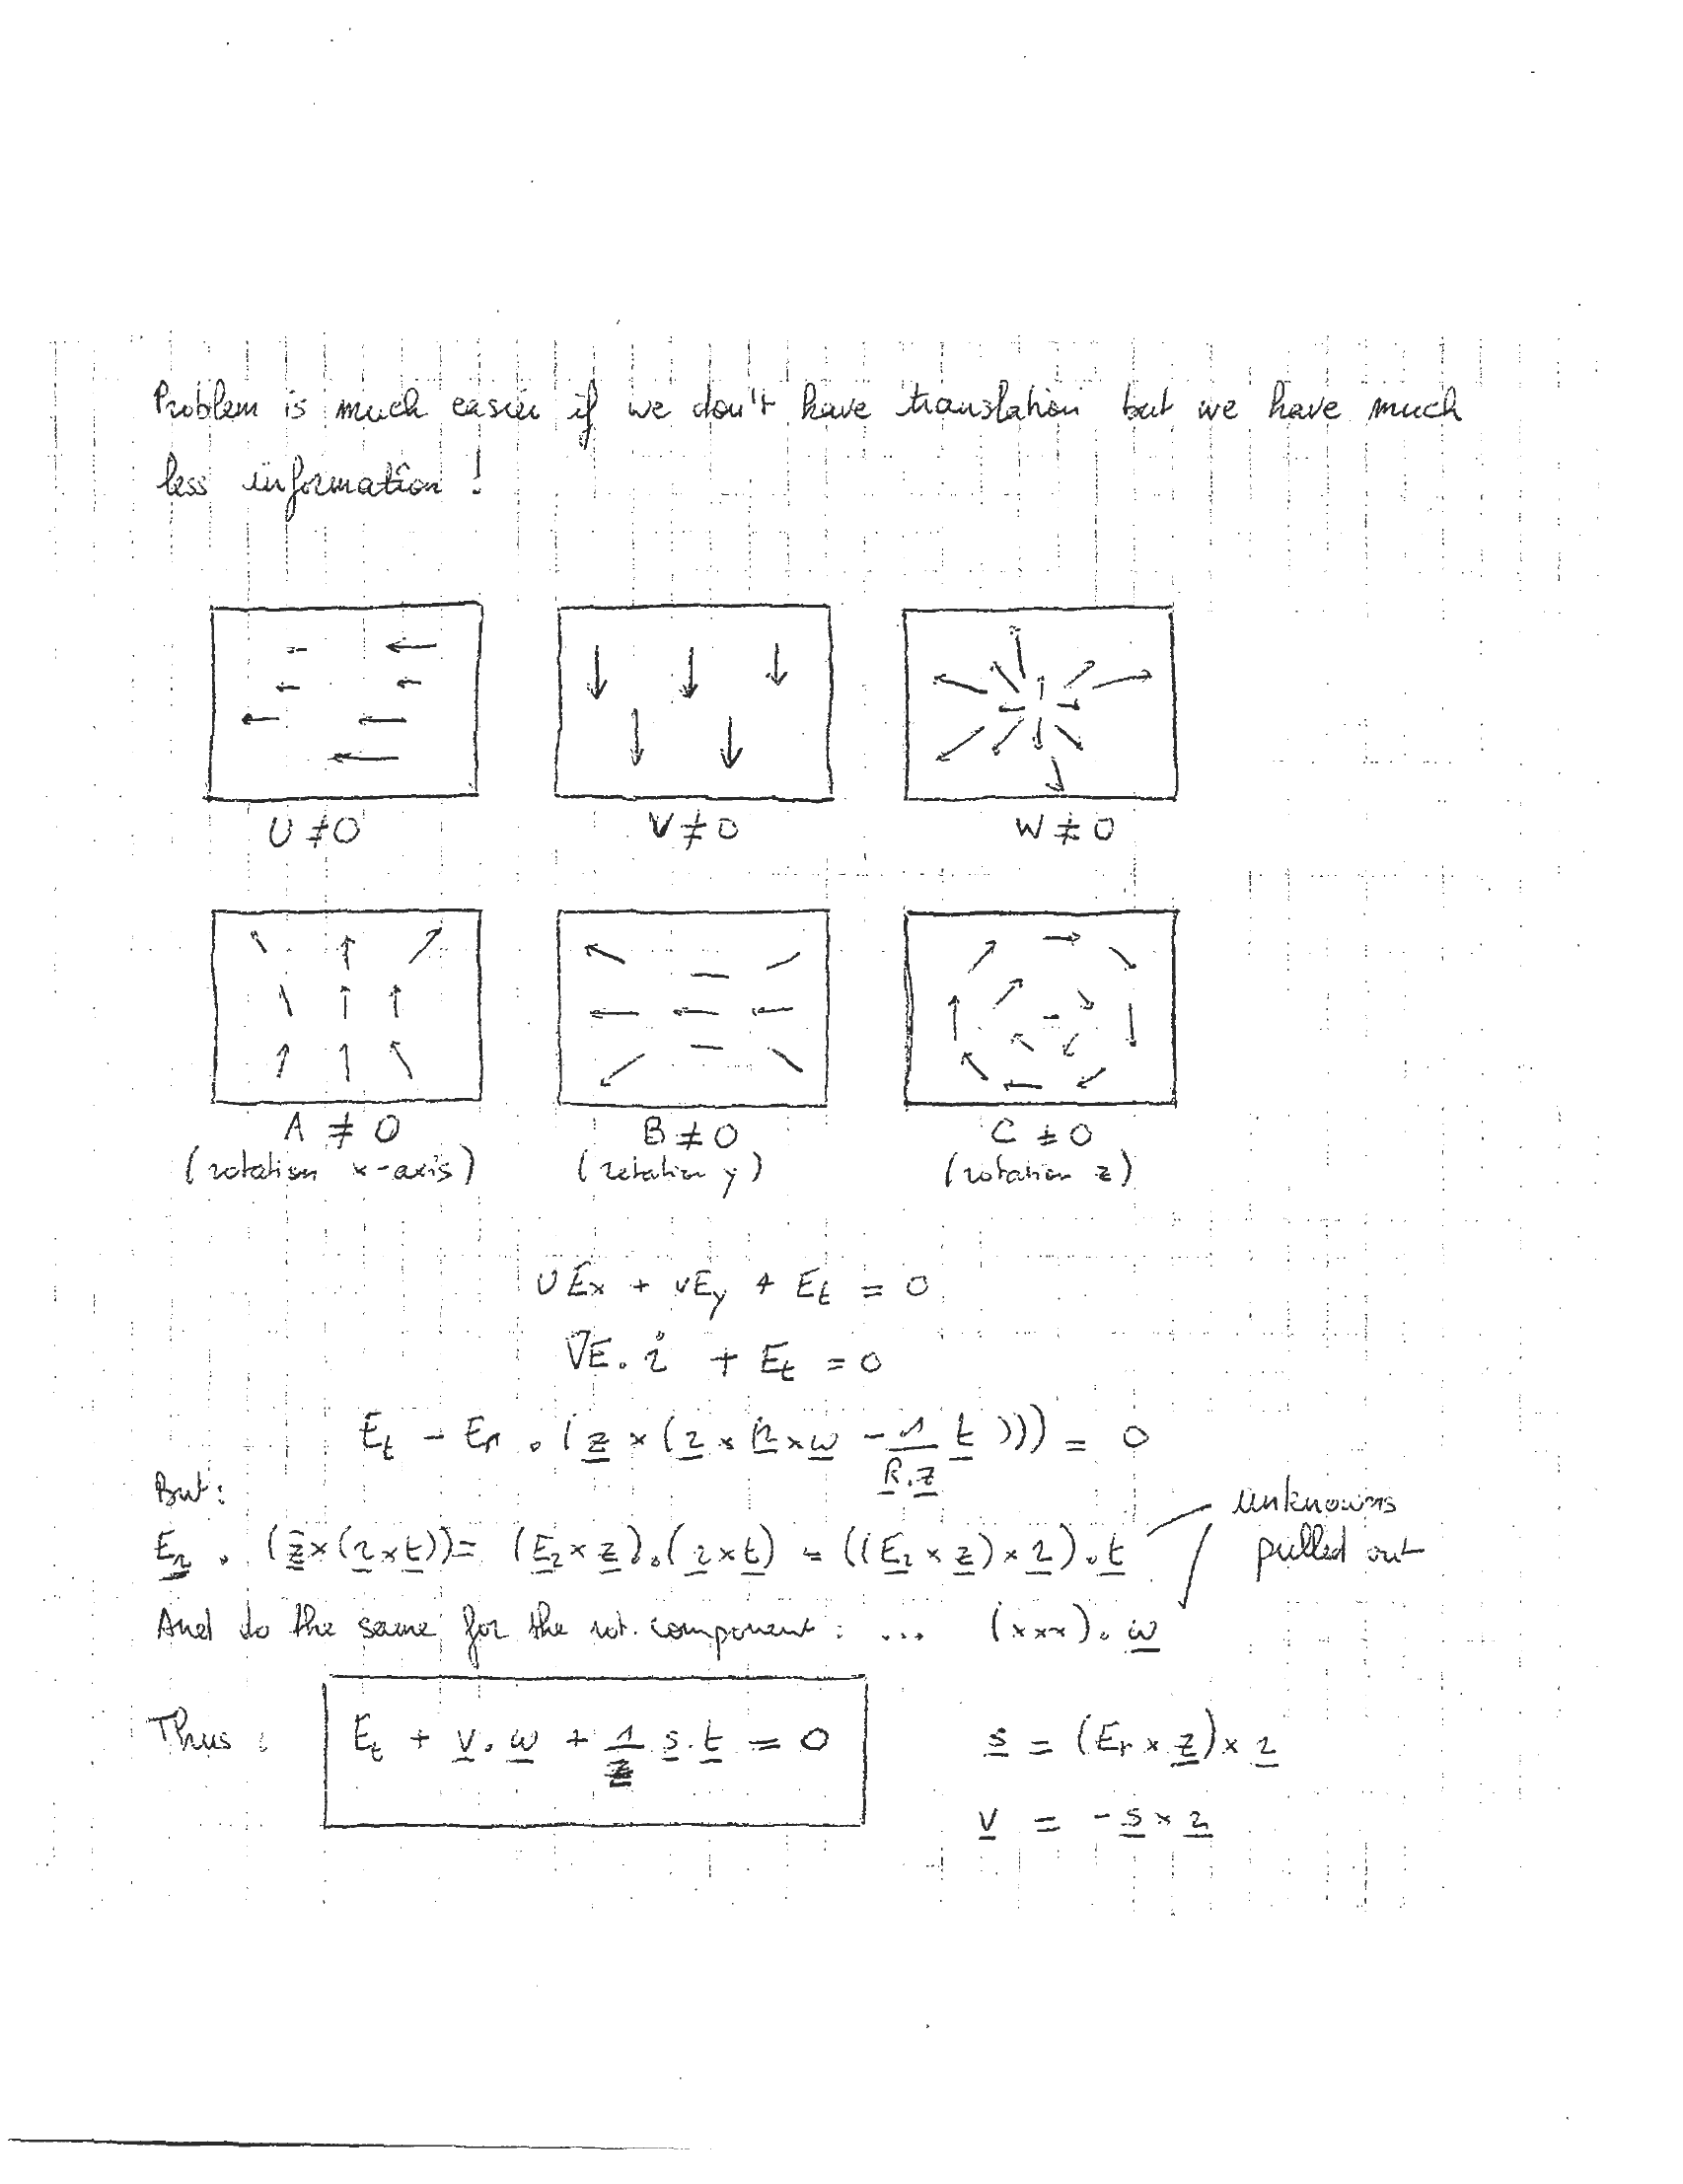 Problem is much easier if we don't have translation but we have much
less information!
U ≠ 0
V ≠ 0
W ≠ 0
A ≠ 0
B ≠ 0
C ≠ 0
(rotation x-axis)
(rotation y)
(rotation z)
uEx + vEy + Et = 0
∇E . ṙ + Et = 0
Et - Er . (z × (r × (r × ω - 1/(R.z) t))) = 0
But:
Er . (z × (r × t)) = (Er × z) . (r × t) = ((Er × z) × r) . t
unknowns
pulled out
And do the same for the rot. component : ... (xxx) . ω
Thus : Et + v . ω + 1/Z s . t = 0
s = (Er × z) × r
v = - s × r